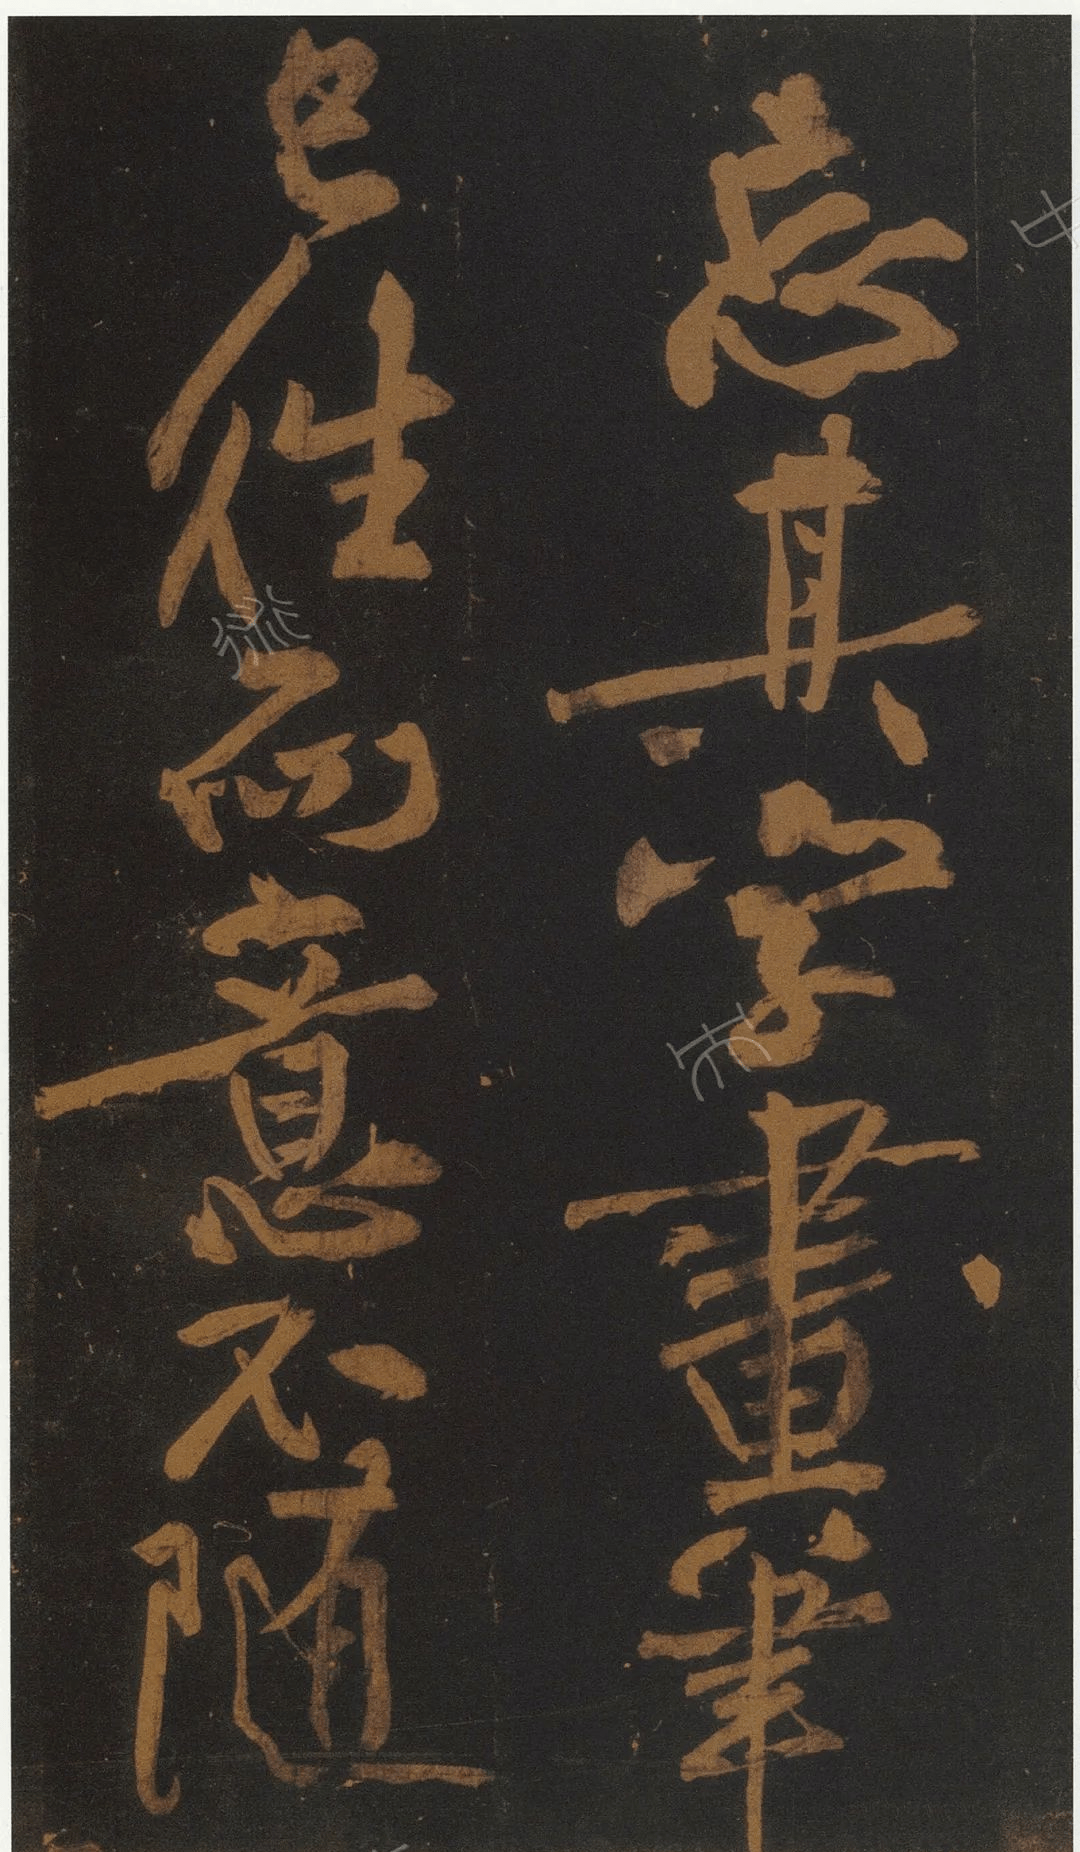 忘其字畫筆
已往而意不隨